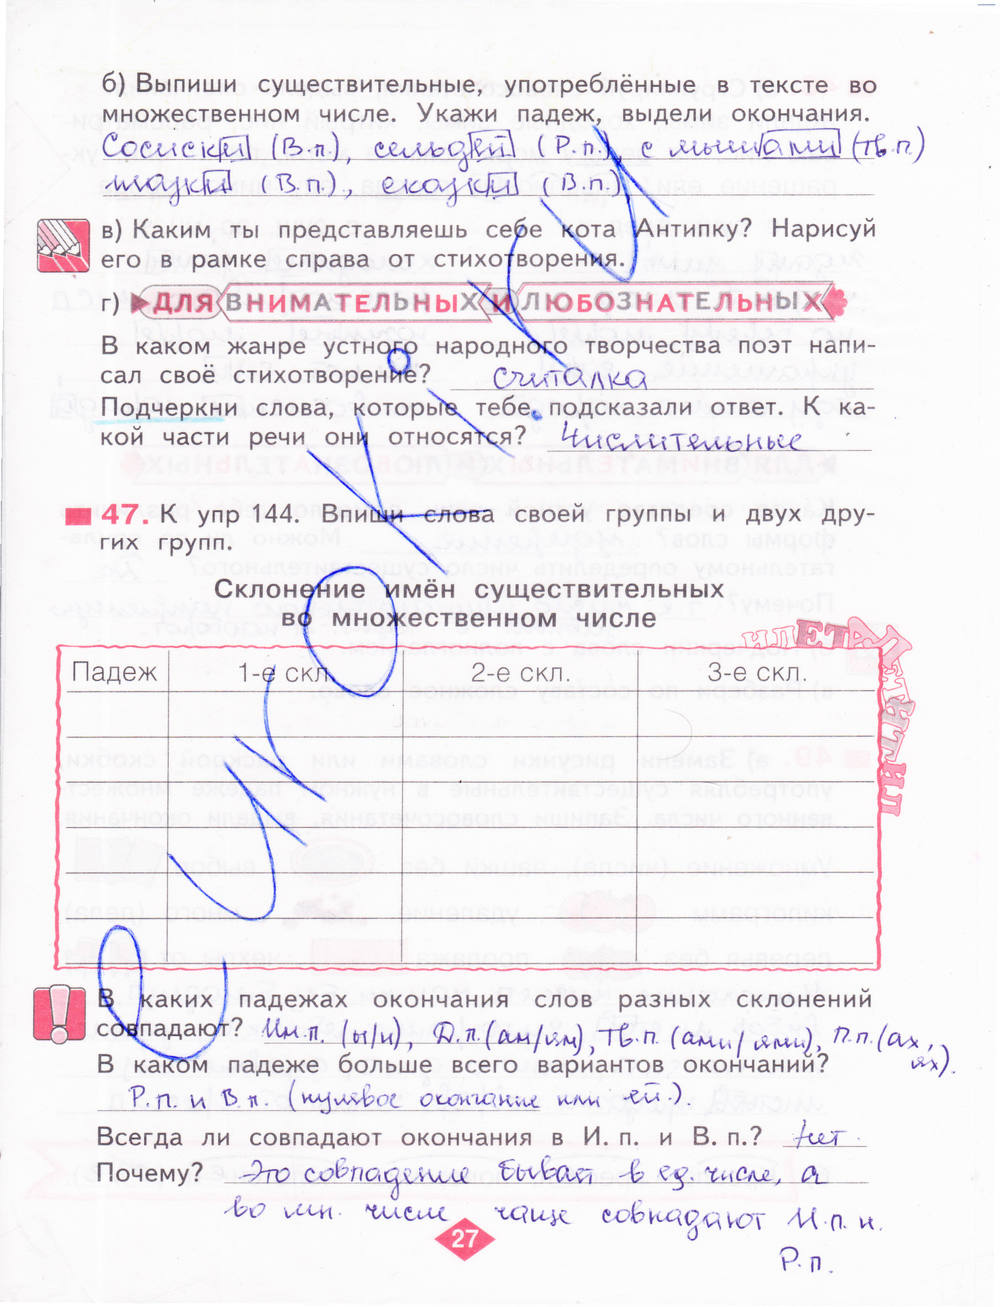 б) Выпиши существительные, употреблённые в тексте во
множественном числе. Укажи падеж, выдели окончания.
Сосиски (В.п.), сельдей (Р.п.), с мышами (Тв.п.)
шапки (В.п.), сказки (В.п.)
в) Каким ты представляешь себе кота Антипку? Нарисуй
его в рамке справа от стихотворения.
г) ДЛЯ ВНИМАТЕЛЬНЫХ И ЛЮБОЗНАТЕЛЬНЫХ
В каком жанре устного народного творчества поэт напи-
сал своё стихотворение? считалка
Подчеркни слова, которые тебе подсказали ответ. К ка-
кой части речи они относятся? Числительные
47. К упр 144. Впиши слова своей группы и двух дру-
гих групп.
Склонение имён существительных
во множественном числе
Падеж 1-е скл. 2-е скл. 3-е скл.
В каких падежах окончания слов разных склонений
совпадают? Им.п. (ы/и), Д.п. (ам/ям), Тв.п. (ами/ями), П.п. (ах,
ях).
В каком падеже больше всего вариантов окончаний?
Р.п. и В.п. (нулевое окончание или -ей.).
Всегда ли совпадают окончания в И. п. и В. п.? Нет.
Почему? Это совпадение бывай в ед. числе, а
во мн. числе чаще совпадают И.п. и.
Р.п.
27